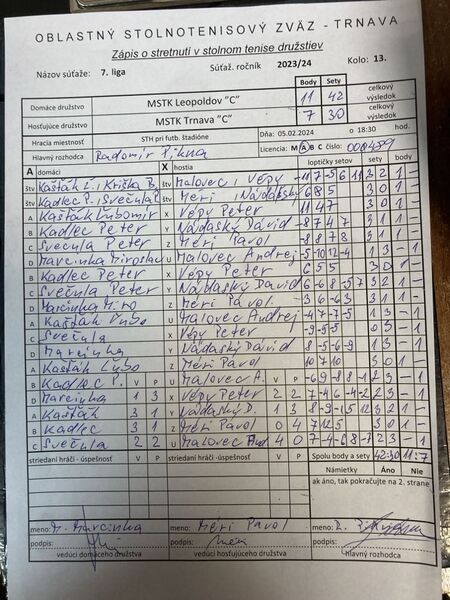 OBLASTNÝ STOLNOTENISOVÝ ZVÄZ - TRNAVA
Zápis o stretnutí v stolnom tenise družstiev
Názov súťaže: 7. liga Súťaž. ročník 2023/24 Kolo: 13.
Body Sety
Domáce družstvo MSTK Leopoldov "C" 11 42 celkový výsledok
Hosťujúce družstvo MSTK Trnava "C" 7 30 celkový výsledok
Hracia miestnosť STH pri futb. štadióne Dňa: 05.02.2024 o 18:30 hod.
Hlavný rozhodca Radomír Licencia: M A B C číslo:
A domáci X hostia loptičky setov sety body
štv Kašták Ľ., Kriška štv Malovec, Vépy 3 2 1 -
štv Kadlec P., Svečula štv Méri, Nádaský 6 8 5 3 0 1 -
A Kašták Ľubomír X Vépy Peter 11 4 7 3 0 1 -
B Kadlec Peter Y Nádaský Dávid -8 7 4 7 3 1 1 -
C Svečula Peter Z Méri Pavol -8 8 7 8 3 1 1 -
D Marcinka Miroslav U Malovec Andrej -5 -10 12 -4 1 3 - 1
B Kadlec Peter X Vépy Peter 6 5 5 3 0 1 -
C Svečula Peter Y Nádaský Dávid 3 2 1 -
D Marcinka Miro Z Méri Pavol -3 6 -6 3 3 1 1 -
A Kašták Ľubo U Malovec Andrej -4 7 -7 -5 1 3 - 1
C Svečula X Vépy Peter -9 -5 -5 0 3 - 1
D Marcinka Y Nádaský Dávid 8 -5 -6 -9 1 3 - 1
A Kašták Ľubo Z Méri Pavol 10 7 10 3 0 1
B Kadlec P. V P U Malovec A. V P -6 9 -8 8 -12 2 3 - 1
D Marcinka 1 3 X Vépy Peter 2 2 7 -4 6 -4 -2 2 3 - 1
A Kašták 3 1 Y Nádaský D. 1 3 3 2 1 -
B Kadlec 3 1 Z Méri Pavol 0 4 7 12 5 3 0 1 -
C Svečula 2 2 U Malovec 4 0 7 -4 -6 8 -7 2 3 - 1
striedaní hráči - úspešnosť V P striedaní hráči - úspešnosť V P Spolu body a sety 42:30 11:7
Námietky Áno Nie
ak áno, tak pokračujte na 2. strane
meno: M. Marcinka meno: Méri Pavol meno:
podpis: podpis: podpis:
vedúci domáceho družstva vedúci hosťujúceho družstva hlavný rozhodca